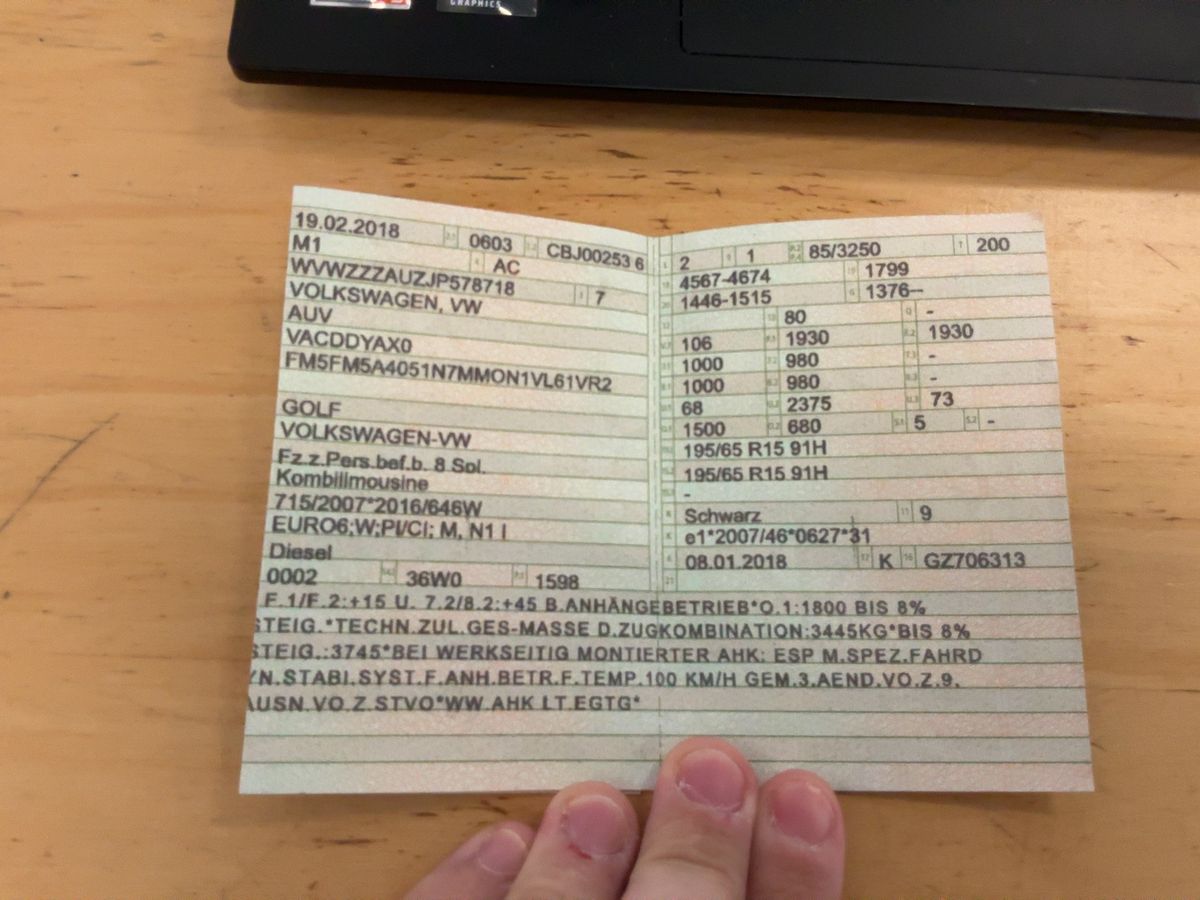 GRAPHICS
19.02.2018 0603 CBJ00253 6
M1 AC
WVWZZZAUZJP578718 7
VOLKSWAGEN, VW
AUV
VACDDYAX0
FM5FM5A4051N7MMON1VL61VR2
GOLF
VOLKSWAGEN-VW
Fz.z.Pers.bef.b. 8 Spl.
Kombilimousine
715/2007*2016/646W
EURO6;W;PI/CI; M, N1 I
Diesel
0002 36W0 1598
2 1 85/3250 200
4567-4674 1799
1446-1515 1376--
80 -
106 1930 1930
1000 980 -
1000 980 -
68 2375 73
1500 680 5 -
195/65 R15 91H
195/65 R15 91H
-
Schwarz 9
e1*2007/46*0627*31
08.01.2018 K GZ706313
F.1/F.2:+15 U. 7.2/8.2:+45 B.ANHÄNGEBETRIEB*O.1:1800 BIS 8%
STEIG.*TECHN.ZUL.GES-MASSE D.ZUGKOMBINATION:3445KG*BIS 8%
STEIG.:3745*BEI WERKSEITIG MONTIERTER AHK: ESP M.SPEZ.FAHRD
YN.STABI.SYST.F.ANH.BETR.F.TEMP.100 KM/H GEM.3.AEND.VO.Z.9.
AUSN.VO.Z.STVO*WW.AHK LT.EGTG*